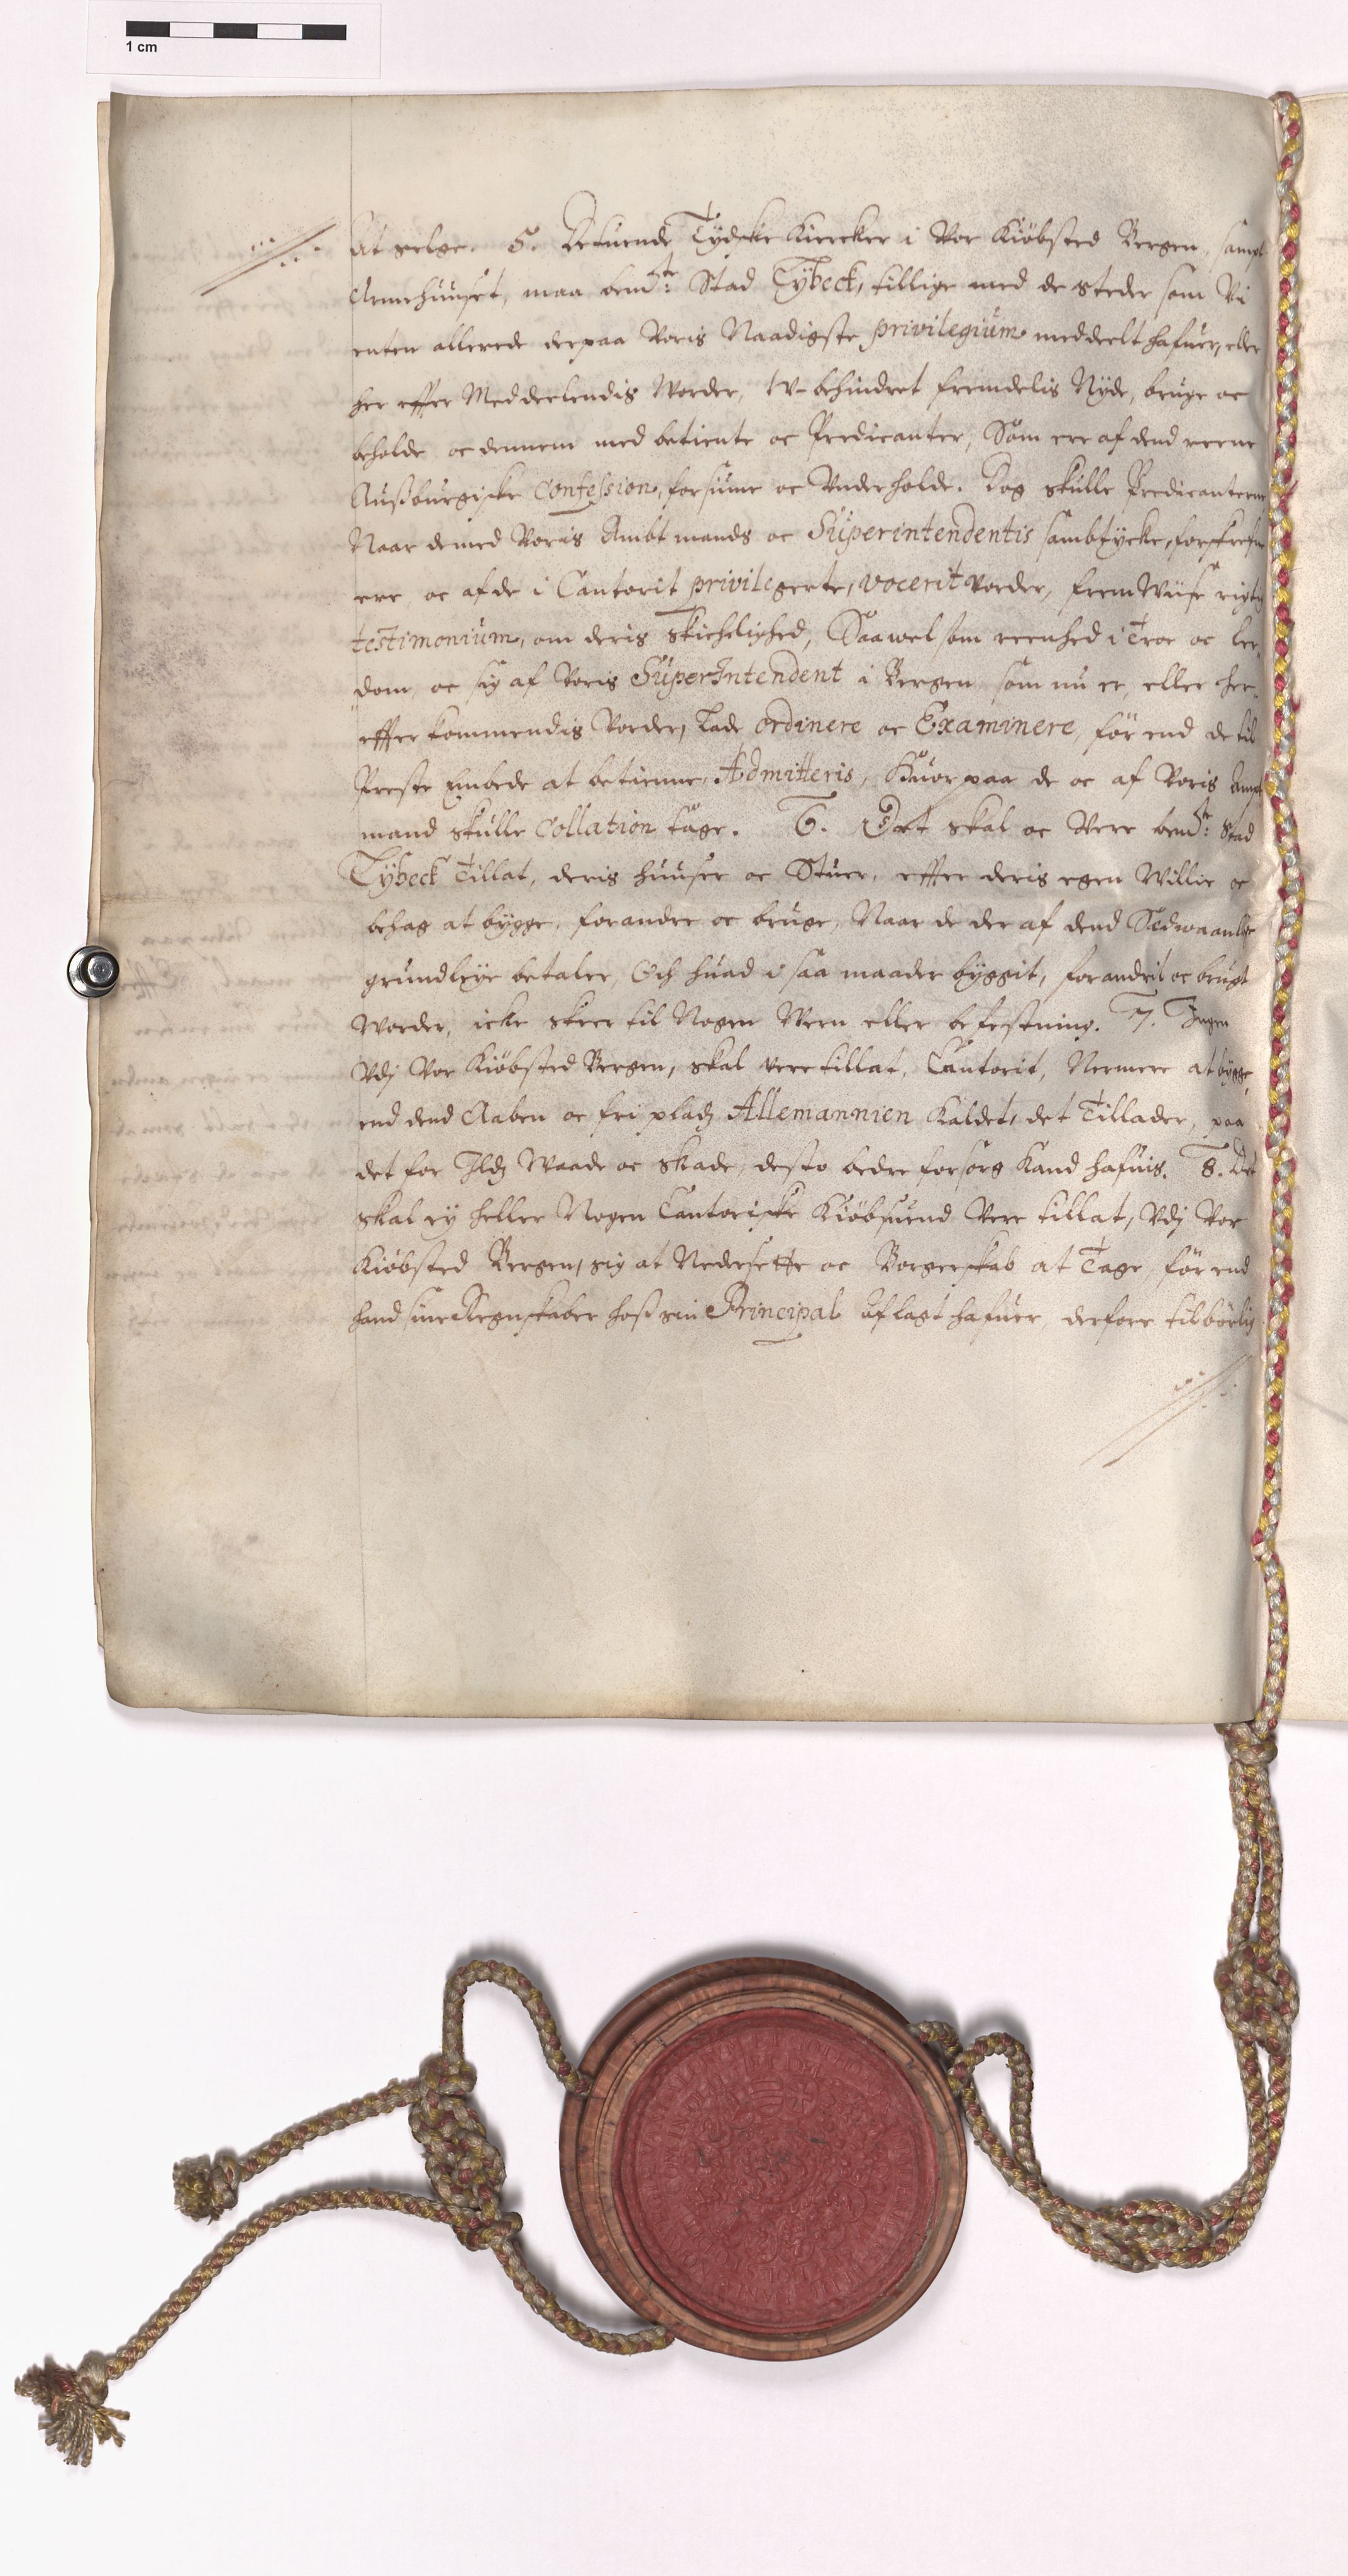 1 cm
at selge. 5. De tuende Tydske Kiercker i Vor Kiöbsted Bergen, sampt
Armehuuset, maa bemte: Stad Lÿbeck, tillige med de steder som Vi
enten allerede derpaa Voris Naadigste privilegium meddeelt hafuer, eller
her effter Meddeelendis Worder, Wbehindret fremdelis Nyde, bruge oc
beholde, oc dennem med betiente oc Predicanter, Som ere af dend reene
Außburgiske Confession, forsiune oc Underholde. Dog skulle Predicanterne
Naar de med Voris Ambtmands oc Superintendentis sambtycke, forskrefne
ere, oc af de i Cantorit privilegerte, vocerit vorder, frem Wiise rigtig
testimonium, om deris Skickelighed, Saawel som reenhed i Troe oc ler,
dom, oc sig af Voris SuperIntendent i Bergen som nu er, eller her,
effter kommendis Vorder, Lade ordinere oc Examinere, för end de til
Preste Embede at betienne, Admitteris, Huor paa de oc af Voris Ampt
mand skulle Collation tage. 6. Det skal oc Vere bemte: Stad
Lÿbeck Tillat, deris huuser oc Stuer, effter deris egen Willie oc
behag at bygge, forandre oc bruge, Naar de der af dend Sædwaanlige
grundleÿe betaler, Och huad i saa maader byggit, forandrit oc brugt
Worder, icke skeer til Nogen Wern eller befestning. 7. Ingen
Udj Vor Kiöbsted Bergen, skal vere tillat, Cantorit, Nermere at bygge,
end dend Aaben oc fri pladz Allemannien Kaldet, det Tillader, paa
det for Ildz Waade oc skade, desto bedre forsorg Kand hafuis. 8. Det
skal ey heller Nogen Cantoriske Kiöbsuend Vere tillat, Udj Vor
Kiöbsted Bergen, sig at Nedersette oc Borgerskab at Tage, för end
hand sine Regenskaber hoß sin Principal aflagt hafuer, derfore tilbörlig